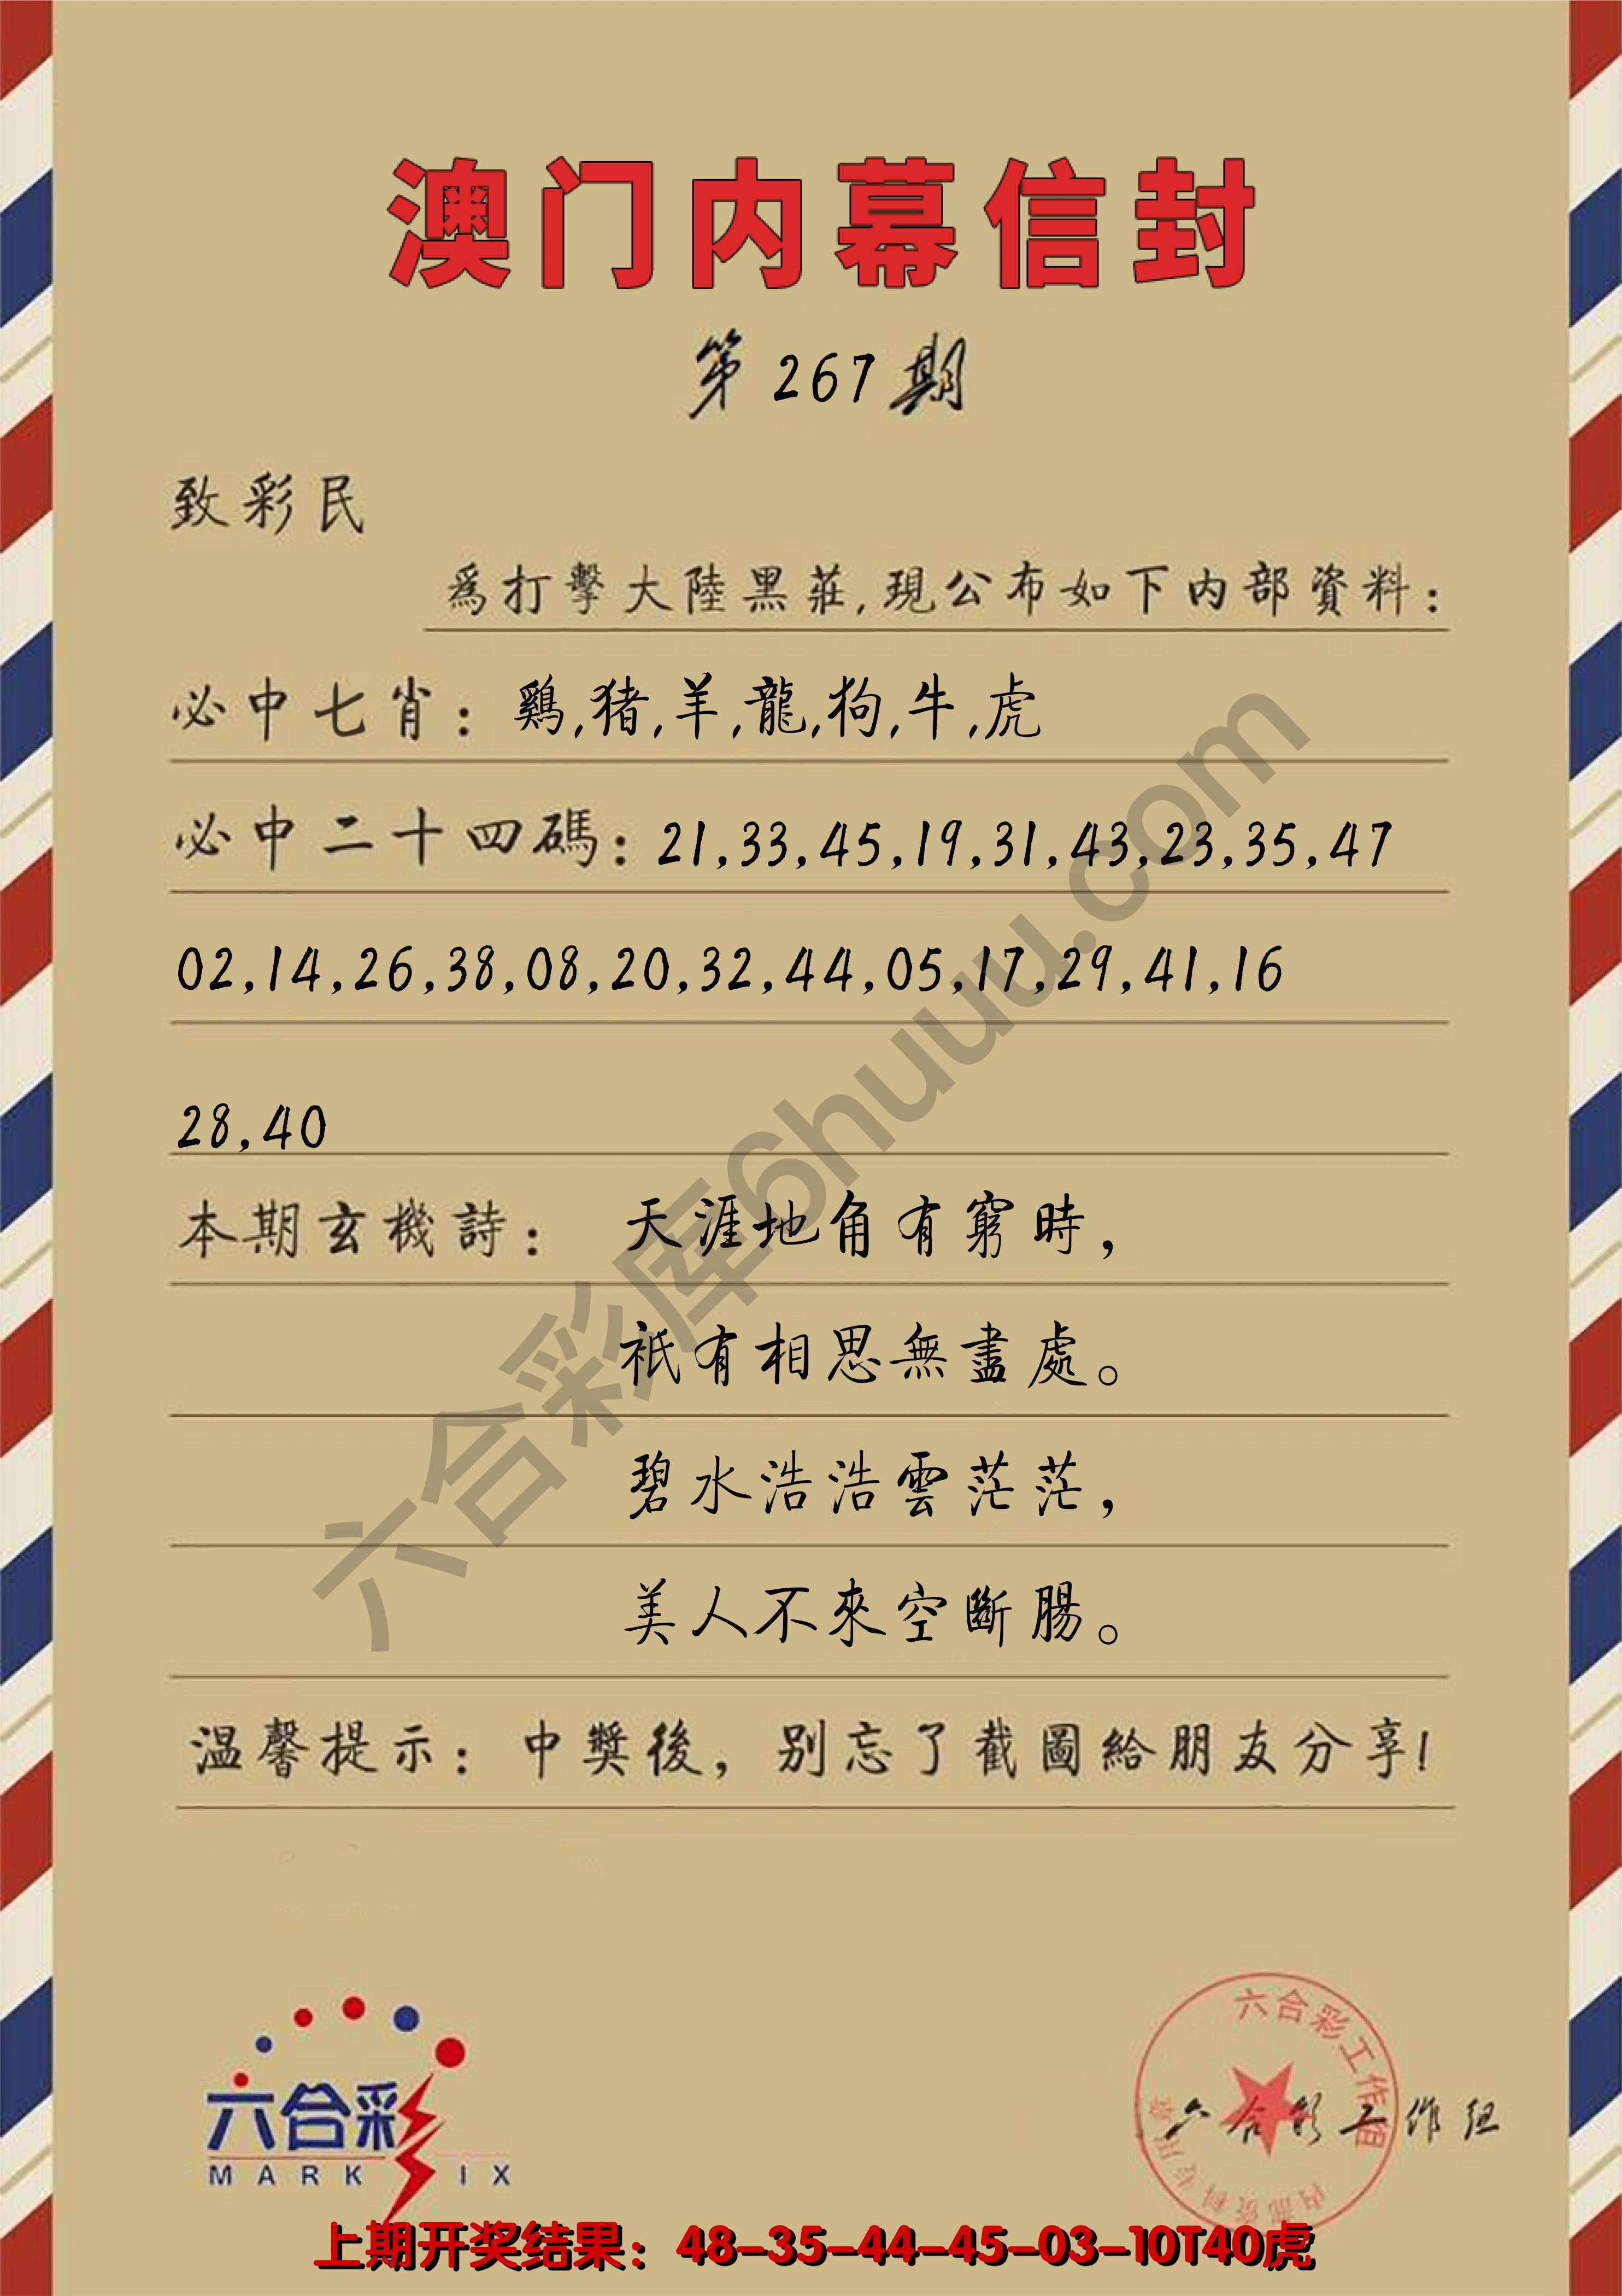 澳门内幕信封
第267期
致彩民
爲打擊大陸黑莊,現公布如下内部資料:
必中七肖: 鷄,猪,羊,龍,狗,牛,虎
必中二十四碼: 21,33,45,19,31,43,23,35,47
02,14,26,38,08,20,32,44,05,17,29,41,16
28,40
本期玄機詩: 天涯地角有窮時,
祇有相思無盡處。
碧水浩浩雲茫茫,
美人不來空斷腸。
温馨提示: 中獎後, 别忘了截圖給朋友分享!
六合彩库6huuu.com
六合彩
MARK SIX
六合彩工作组
内部资料专用章
六合彩工作组
上期开奖结果: 48-35-44-45-03-10T40虎